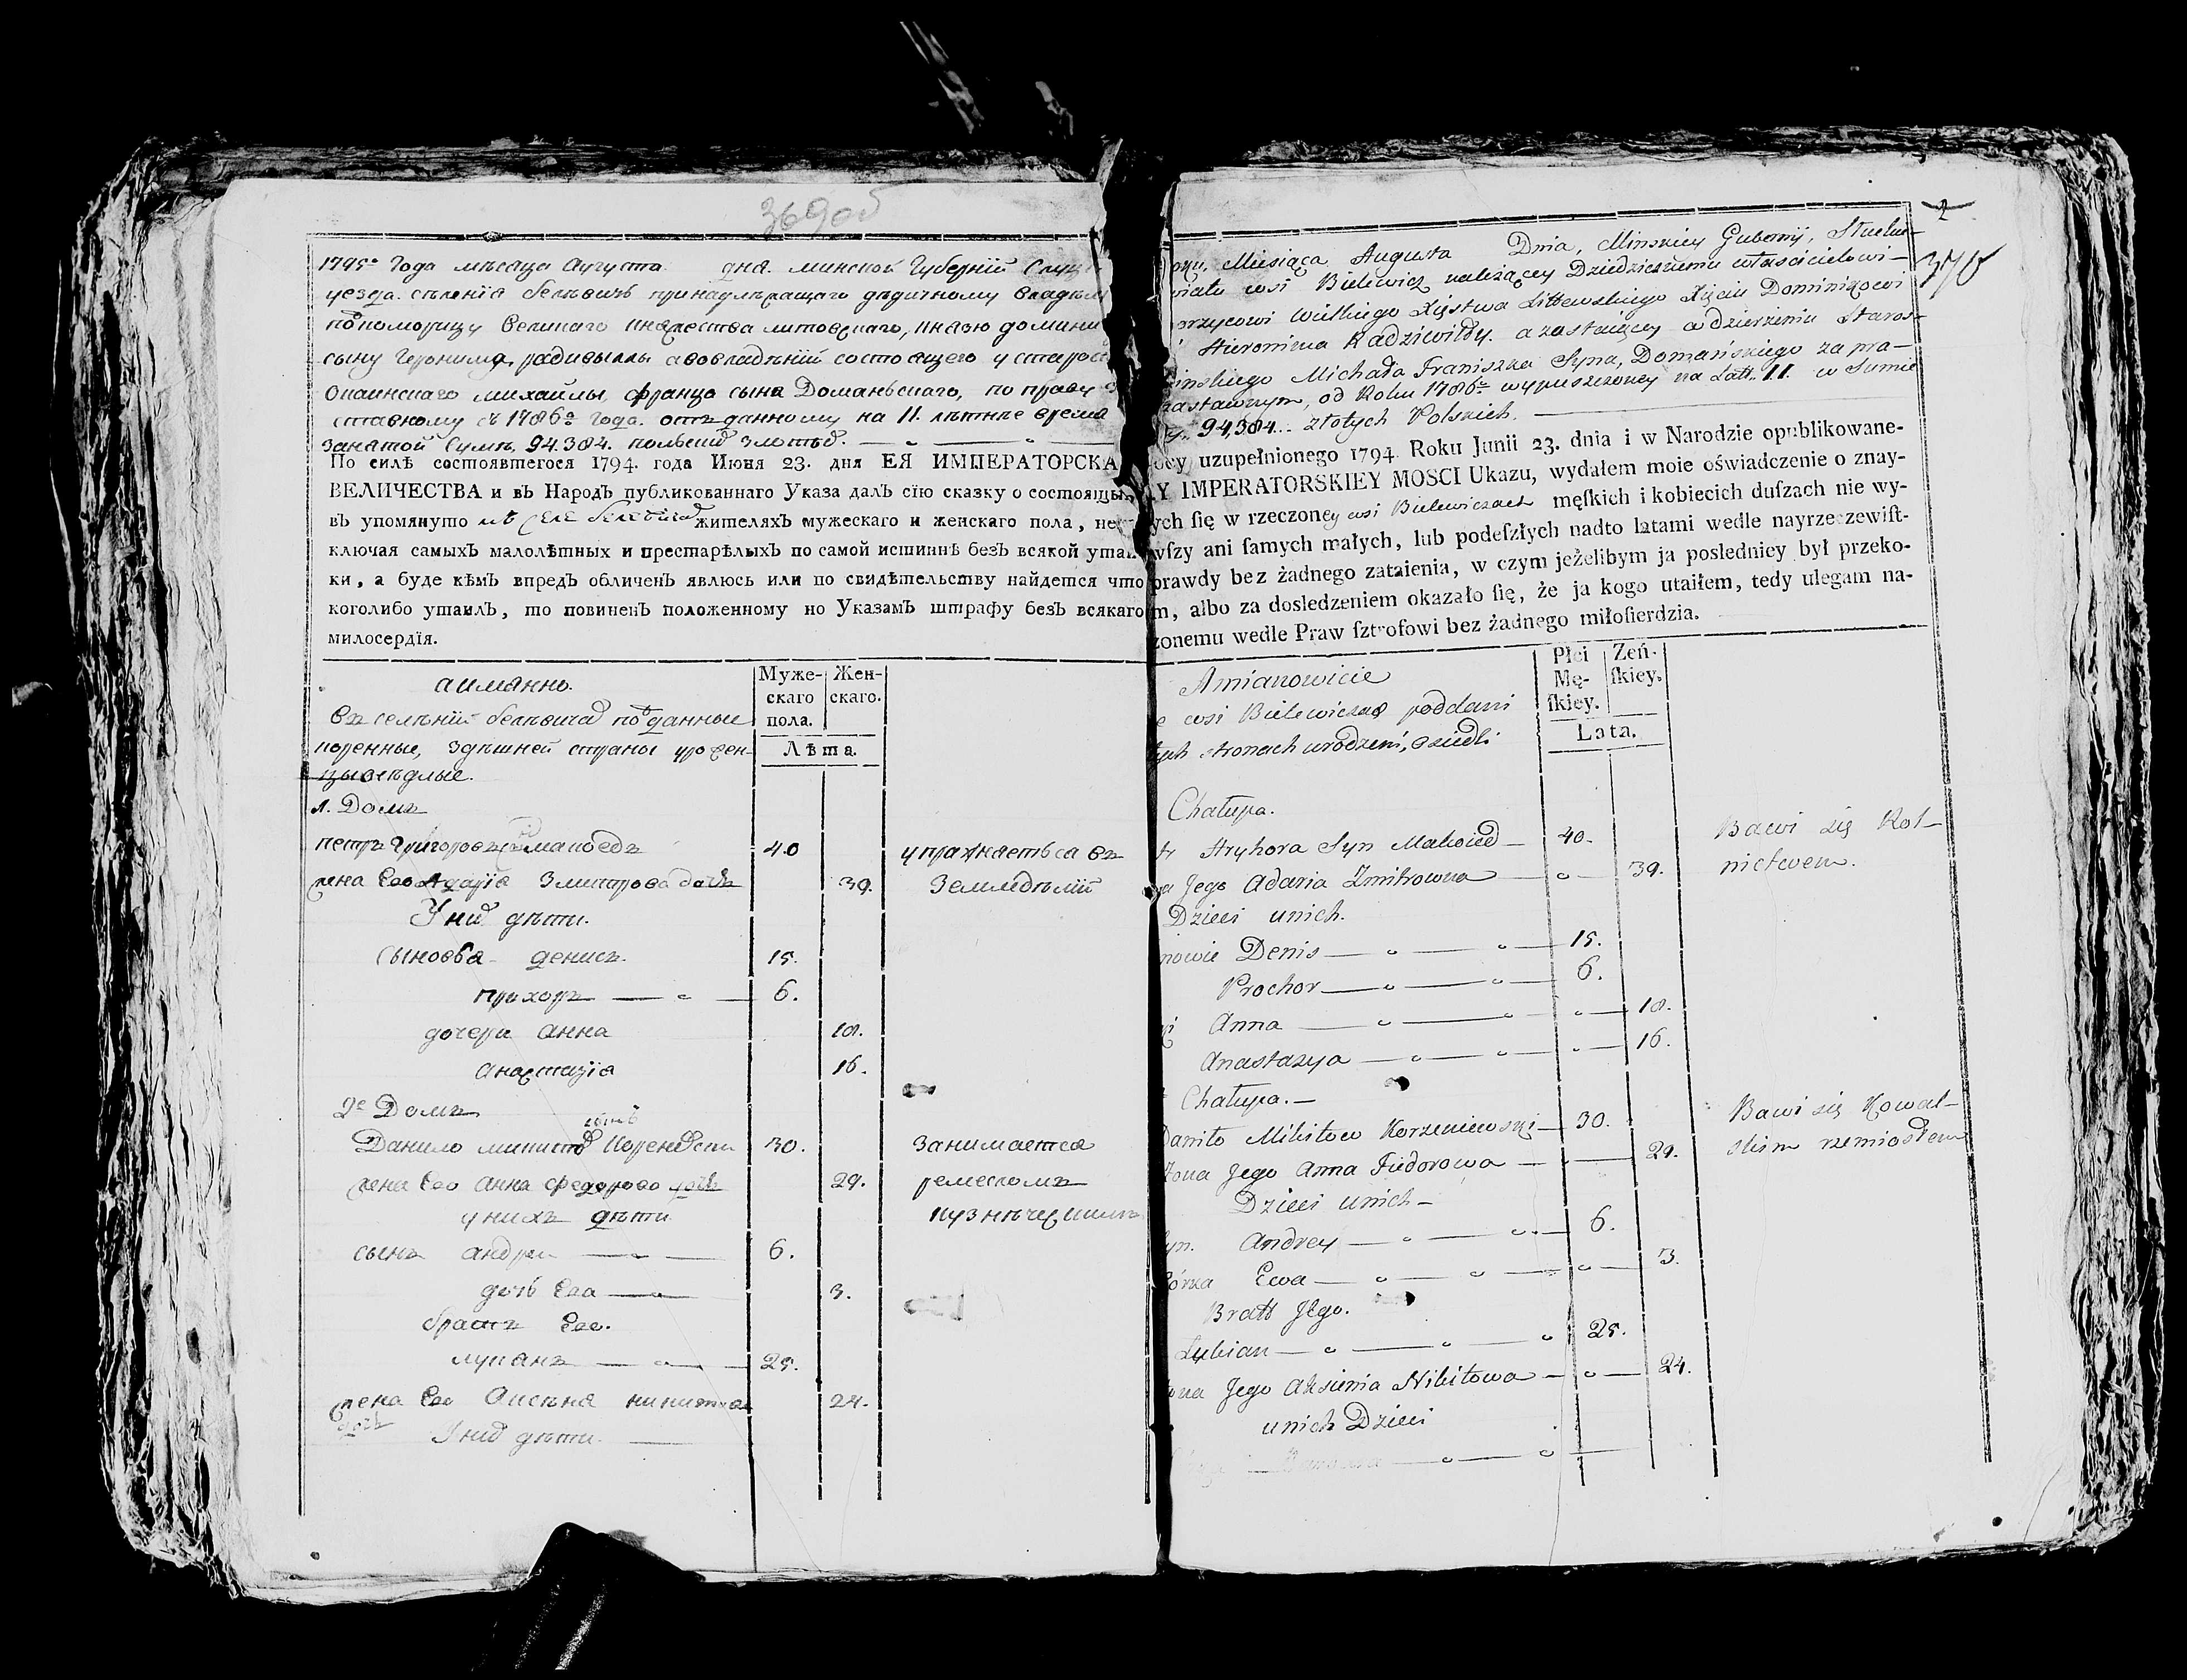 369об
1795го Года мѣсяца Августа дня. минской Губернїй Слуц
уезда. сѣленїя белѣвичъ принадлѣжащаго дѣдичному владѣлц
подкоморицу Великаго Княжества литовскаго, Князю домини
сыну Геронима, радивыллы а во владѣнїй состоящего у старост
Опаинскаго михайлы, францо сына Доманьскаго, по праву з
ставному съ 1786го Года. отъданному на 11. лѣтнее время
занятой Сумъ, 94.384. польскихъ злотыхъ.
По силѣ состоявшегося 1794. года Июня 23. дня ЕЯ ИМПЕРАТОРСКА
ВЕЛИЧЕСТВА и въ Народъ публикованнаго Указа далъ сїю сказку о состоящы
въ упомянуто мъ селе белевичахъ жителяхъ мужескаго и женскаго пола, не
ключая самыхъ малолѣтныхъ и престарѣлыхъ по самой истиннѣ безъ всякой утай
ки, а буде кѣмъ впредъ обличенъ явлюсь или по свидѣтельству найдется что
коголибо утаилъ, то повиненъ положенному по Указамъ штрафу безъ всякаго
милосердїя.
а имянно.
Муже-
скаго
пола.
Жен-
скаго.
Лѣта.
въ селѣнїй белѣвичахъ подъданные
коренные, здѣшней страны урожен-
цы осѣдлые.
1. Домъ
петръ Григоровъ сынъ макоедъ 40 упражняеться въ
жена Его Адарїя Змитрова дочь 39. Земледѣлїй
У нихъ дѣти.
Сыновья денисъ. 15.
прохоръ 6.
дочери Анна 18.
Анастазїя 16.
2е Домъ
Данило микитовъ сынъ Корженевски 30. Занимается
жена Его Анна Федорова дочь 29. ремесломъ
у нихъ дѣти кузнѣческимъ
сынъ андреи 6.
дочь Ева 3.
братъ Его.
лукянъ 25.
жена Его Оксѣня никитова 24.
дочь
У нихъ дѣти.
2
370
oku, Miesiąca Augusta Dnia, Minskiey Gubernij, Słuckie-
wiatu wsi Bielewicz należącey Dziedzicznemu właścicielowi
orzycowi Wielkiego Xięstwa Littewskiego Xięciu Dominikowi
Hieronima Radziwiłły. a zostaiącey w dzierzeniu Staros-
inskiego Michała Franiszka Syna, Domańskiego za pra-
zastawnym, od Roku 1786o wypuszczoney na Latt. 11. w Sumie
94,384. złotych Polskich.
ocy uzupełnionego 1794. Roku Junii 23. dnia i w Narodzie opublikowane-
EY IMPERATORSKIEY MOSCI Ukazu, wydałem moie oświadczenie o znay-
ych się w rzeczoney wsi Bielewiczach męſkich i kobiecich duſzach nie wy-
wſzy ani ſamych małych, lub podeſzłych nadto latami wedle nayrzeczewiſt-
prawdy bez żadnego zataienia, w czym jeżelibym ja posledniey był przeko-
m, albo za dosledzeniem okazało ſię, że ja kogo utaiłem, tedy ulegam na-
zonemu wedle Praw ſztrofowi bez żadnego miłoſierdzia.
Amianowicie
Płci
Mę-
ſkiey.
Żeń-
ſkiey.
Lata.
e wsi Bielewiczach poddani
tych stronach urodzeni, osiedli
Chałupa.
tr Hryhora Syn Makoied 40. Bawi się Rol-
na Jego Adaria Zmitrowna 39. nictwem.
Dzieci unich.
nowie Denis 15.
Prochor 6.
ki Anna 18.
Anastazya 16.
Chałupa.
Daniło Mikitow Korzeniewski 30. Bawi się Kowal-
Żona Jego Anna Fiedorowa 29. skim rzemiosłem
Dzieci unich
Syn. Andrey 6.
Córka Ewa 3.
Bratt Jego.
Łukian 25.
Żona Jego Aksienia Nikitowa 24.
unich Dzieci